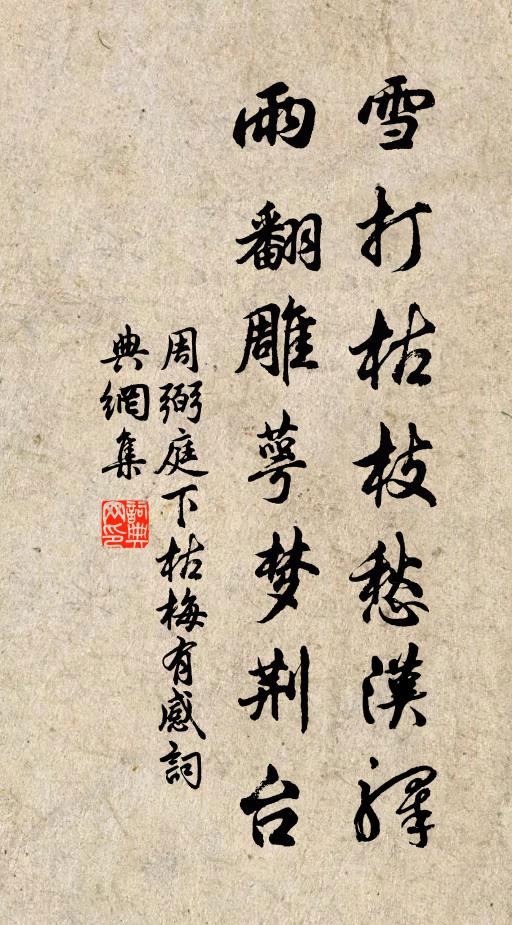 雪打枯枝愁漢驛
雨翻雕萼梦荆台
周弼庭下枯梅有感詞
典網集
詞典網印